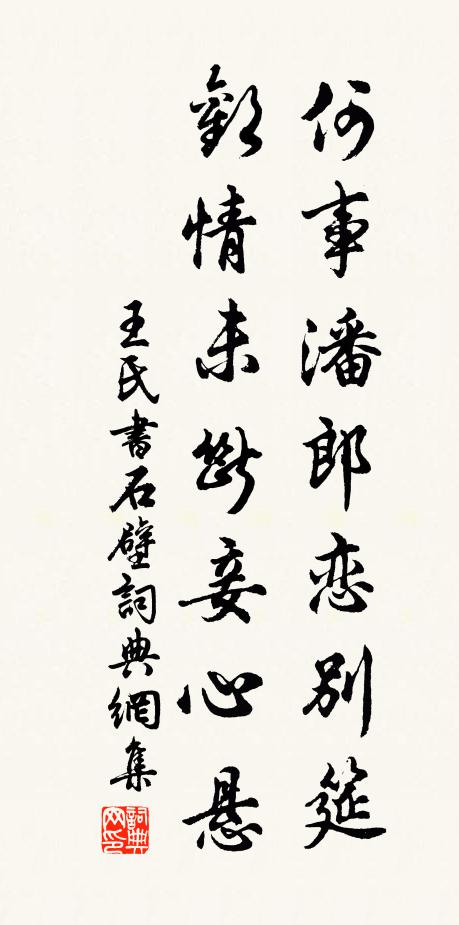 何事潘郎恋別筵
歡情未斷妾心悬
王氏書石壁詞典網集
詞典网印